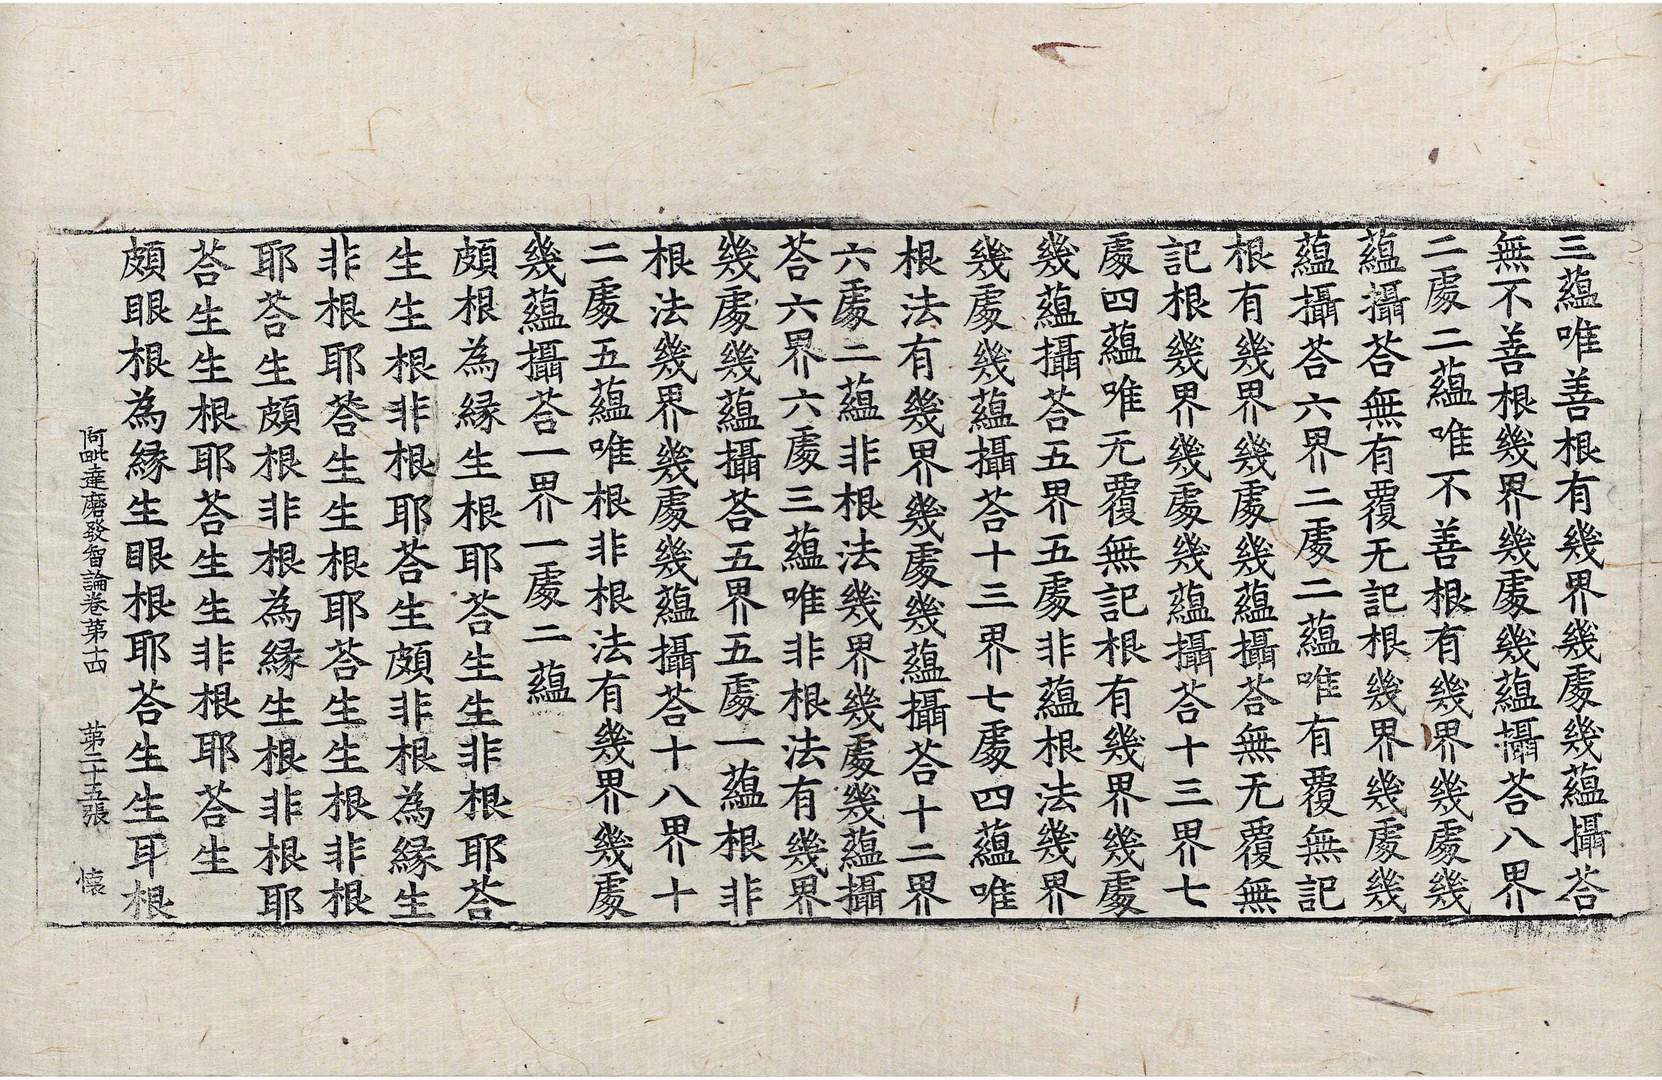 三蘊唯善根有幾界幾處幾蘊攝荅
無不善根幾界幾處幾蘊攝荅八界
二處二蘊唯不善根有幾界幾處幾
蘊攝荅無有覆无記根幾界幾處幾
蘊攝荅六界二處二蘊唯有覆無記
根有幾界幾處幾蘊攝荅無无覆無
記根幾界幾處幾蘊攝荅十三界七
處四蘊唯无覆無記根有幾界幾處
幾蘊攝荅五界五處非蘊根法幾界
幾處幾蘊攝荅十三界七處四蘊唯
根法有幾界幾處幾蘊攝荅十二界
六處二蘊非根法幾界幾處幾蘊攝
荅六界六處三蘊唯非根法有幾界
幾處幾蘊攝荅五界五處一蘊根非
根法幾界幾處幾蘊攝荅十八界十
二處五蘊唯根非根法有幾界幾處
幾蘊攝荅一界一處二蘊
頗根為緣生根耶荅生生非根耶荅
生生根非根耶荅生頗非根為緣生
非根耶荅生生根耶荅生生根非根
耶荅生頗根非根為緣生根非根耶
荅生生根耶荅生生非根耶荅生
頗眼根為緣生眼根耶荅生生耳根
阿毗達磨發智論卷第十四 第二十五張 懷